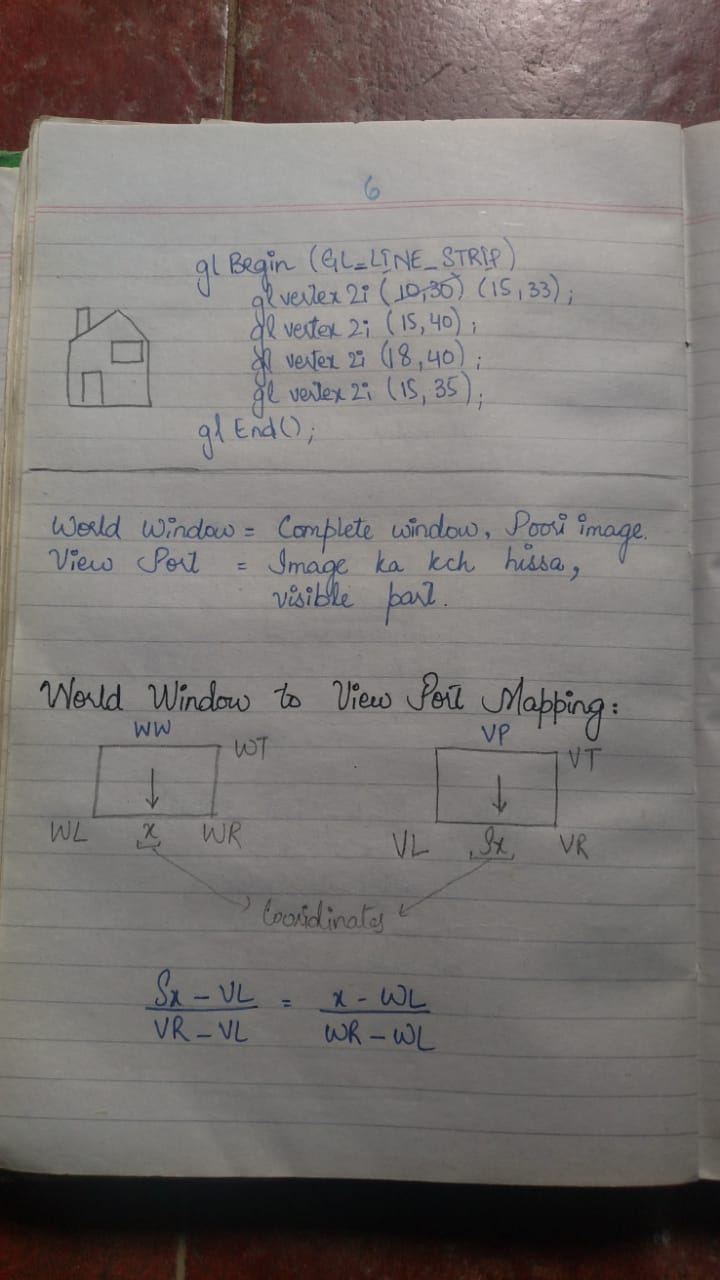 6
gl Begin (GL_LINE_STRIP)
gl vertex 2i (10,30) (15,33);
gl vertex 2i (15,40);
gl vertex 2i (18,40);
gl vertex 2i (15,35);
gl End();
World Window = Complete window, Poori image.
View Port = Image ka kch hissa,
visible part.
World Window to View Port Mapping:
WW VP
WT VT
WL x WR VL Sx VR
Coordinates
Sx - VL = x - WL
VR - VL WR - WL